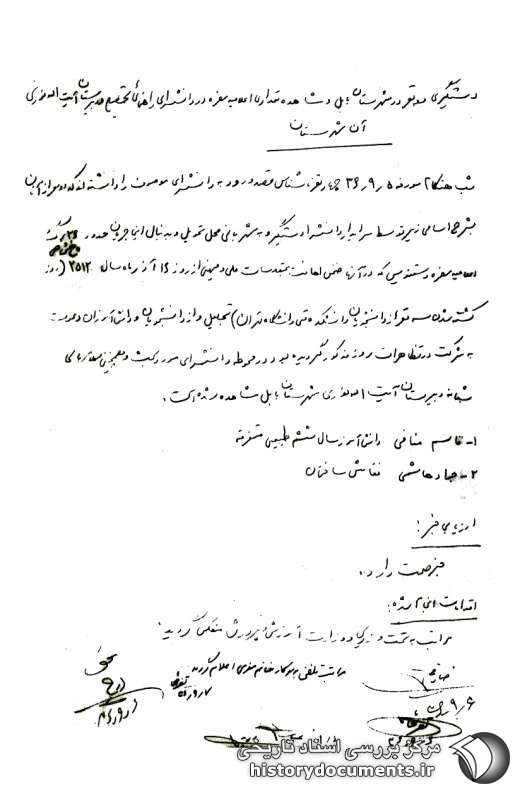 دستگیری دو نفر در شهرستان بابل و مشاهده تعدادی اعلامیه مضره در دانشسرای راهنمائی تحصیلی و دبیرستان آیت اله نوری
آن شهرستان
شب هنگام مورخه ۵ر۹ر۳۶ چهار نفر ناشناس قصد ورود به دانشسرای موصوف را داشته اند که دو نفر از آنان
بشرح اسامی زیر توسط سرایدار دانشسرا دستگیر و به شهربانی محل تحویل و به دنبال این جریان حدود ۳۶ برگ
اعلامیه مضره دستنویس که در آنها ضمن اهانت به مقدسات ملی و میهنی از روز ۱۶ آذر ماه سال ۲۵۱۲ (روز
کشته شدن سه نفر از دانشجویان دانشکده فنی دانشگاه تهران) تجلیل و از دانشجویان و دانش آموزان دعوت
به شرکت در تظاهرات روز مذکور گردیده بود در محوطه دانشسرای مورد بحث و همچنین
دبیرستان آیت اله نوری شهرستان بابل مشاهده شده است.
۱- قاسم منافی دانش آموز سال ششم طبیعی متفرقه
۲- جواد هاشمی نقاش ساختمان
ارزیابی خبر:
خبر صحت دارد.
اقدامات انجام شده:
مراتب به وزارت آموزش و پرورش منعکس گردید.
مراتب تلفنی به سرکار خانم اعلام گردید
۶ر۹ر۳۶
مرکز بررسی اسناد تاریخی
historydocuments.ir